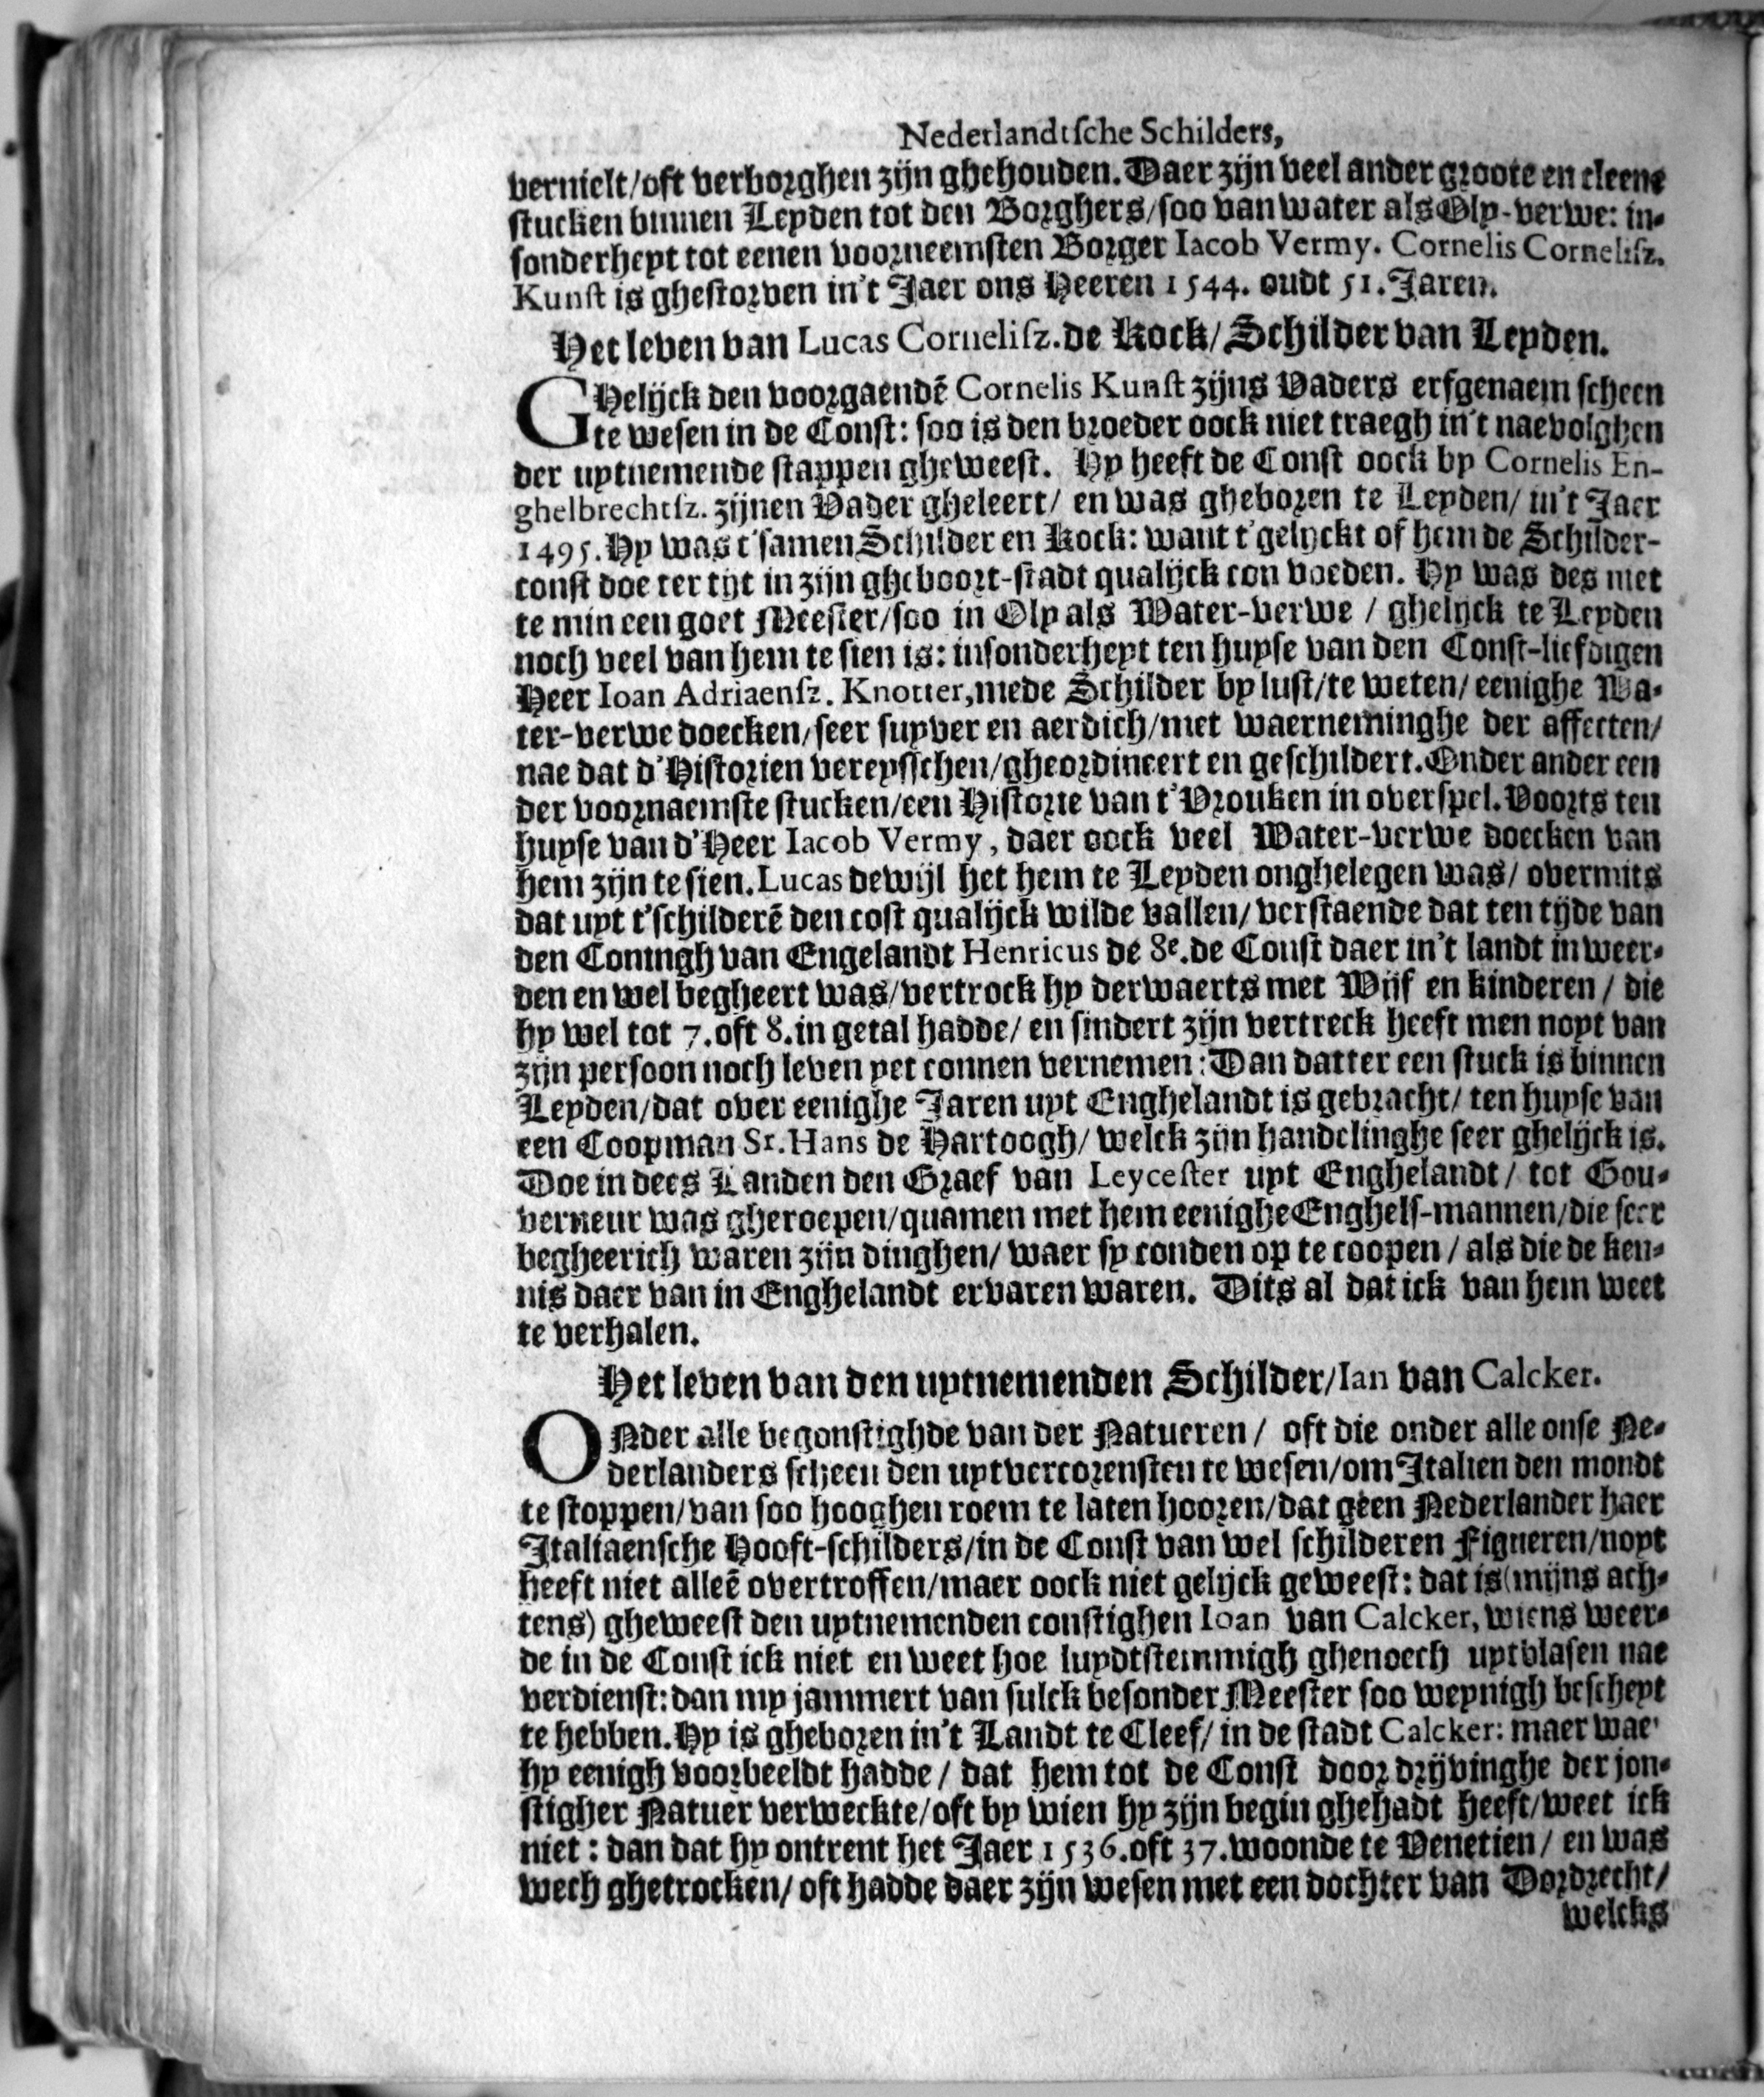 Nederlandtsche Schilders,
vernielt/oft verborghen zijn ghehouden. Daer zijn veel ander groote en cleene
stucken binnen Leyden tot den Borghers/soo van water als Oly-verwe: in-
sonderheyt tot eenen voorneemsten Borger Iacob Vermy. Cornelis Cornelisz.
Kunst is ghestorven in't Jaer ons Heeren 1544. oudt 51. Jaren.
Het leven van Lucas Cornelisz. de Kock/ Schilder van Leyden.
GHelijck den voorgaendē Cornelis Kunst zijns Vaders erfgenaem scheen
te wesen in de Const: soo is den broeder oock niet traegh in't naevolghen
der uytnemende stappen gheweest. Hy heeft de Const oock by Cornelis En-
ghelbrechtsz. zijnen Vader gheleert/ en was gheboren te Leyden/ in't Jaer
1495. Hy was t'samen Schilder en Kock: want t'gelijckt of hem de Schilder-
const doe ter tijt in zijn gheboort-stadt qualijck con voeden. Hy was des niet
te min een goet Meester/soo in Oly als Water-verwe / ghelijck te Leyden
noch veel van hem te sien is: insonderheyt ten huyse van den Const-liefdigen
Heer Ioan Adriaensz. Knotter, mede Schilder by lust/te weten/ eenighe Wa-
ter-verwe doecken/seer suyver en aerdich/met waerneminghe der affecten/
nae dat d'Historien vereysschen/gheordineert en geschildert. Onder ander een
der voornaemste stucken/een Historie van t'Vrouken in overspel. Voorts ten
huyse van d'Heer Iacob Vermy, daer oock veel Water-verwe doecken van
hem zijn te sien. Lucas dewijl het hem te Leyden onghelegen was/ overmits
dat uyt t'schilderē den cost qualijck wilde vallen/ verstaende dat ten tijde van
den Coningh van Engelandt Henricus de 8e. de Const daer in't landt in weer-
den en wel begheert was/vertrock hy derwaerts met Wijf en kinderen / die
hy wel tot 7. oft 8. in getal hadde/ en sindert zijn vertreck heeft men noyt van
zijn persoon noch leven yet connen vernemen: Dan datter een stuck is binnen
Leyden/dat over eenighe Jaren uyt Enghelandt is gebracht/ ten huyse van
een Coopman Sr. Hans de Hartoogh/ welck zijn handelinghe seer ghelijck is.
Doe in dees Landen den Graef van Leycester uyt Enghelandt/ tot Gou-
verneur was gheroepen/quamen met hem eenighe Enghels-mannen/die seer
begheerich waren zijn dinghen/ waer sy conden op te coopen / als die de ken-
nis daer van in Enghelandt ervaren waren. Dits al dat ick van hem weet
te verhalen.
Het leven van den uytnemenden Schilder/Ian van Calcker.
ONder alle begonstighde van der Natueren/ oft die onder alle onse Ne-
derlanders scheen den uytvercorensten te wesen/om Italien den mondt
te stoppen/van soo hooghen roem te laten hooren/dat geen Nederlander haer
Italiaensche Hooft-schilders/in de Const van wel schilderen Figueren/noyt
heeft niet alleē overtroffen/maer oock niet gelijck geweest: dat is (mijns ach-
tens) gheweest den uytnemenden constighen Ioan van Calcker, wiens weer-
de in de Const ick niet en weet hoe luydtstemmigh ghenoech uytblasen nae
verdienst: dan my jammert van sulck besonder Meester soo weynigh bescheyt
te hebben. Hy is gheboren in't Landt te Cleef/ in de stadt Calcker: maer wae'
hy eenigh voorbeeldt hadde/ dat hem tot de Const door drijvinghe der jon-
stigher Natuer verweckte/oft by wien hy zijn begin ghehadt heeft/weet ick
niet: dan dat hy ontrent het Jaer 1536. oft 37. woonde te Venetien/ en was
wech ghetrocken/ oft hadde daer zijn wesen met een dochter van Dordrecht/
welcks